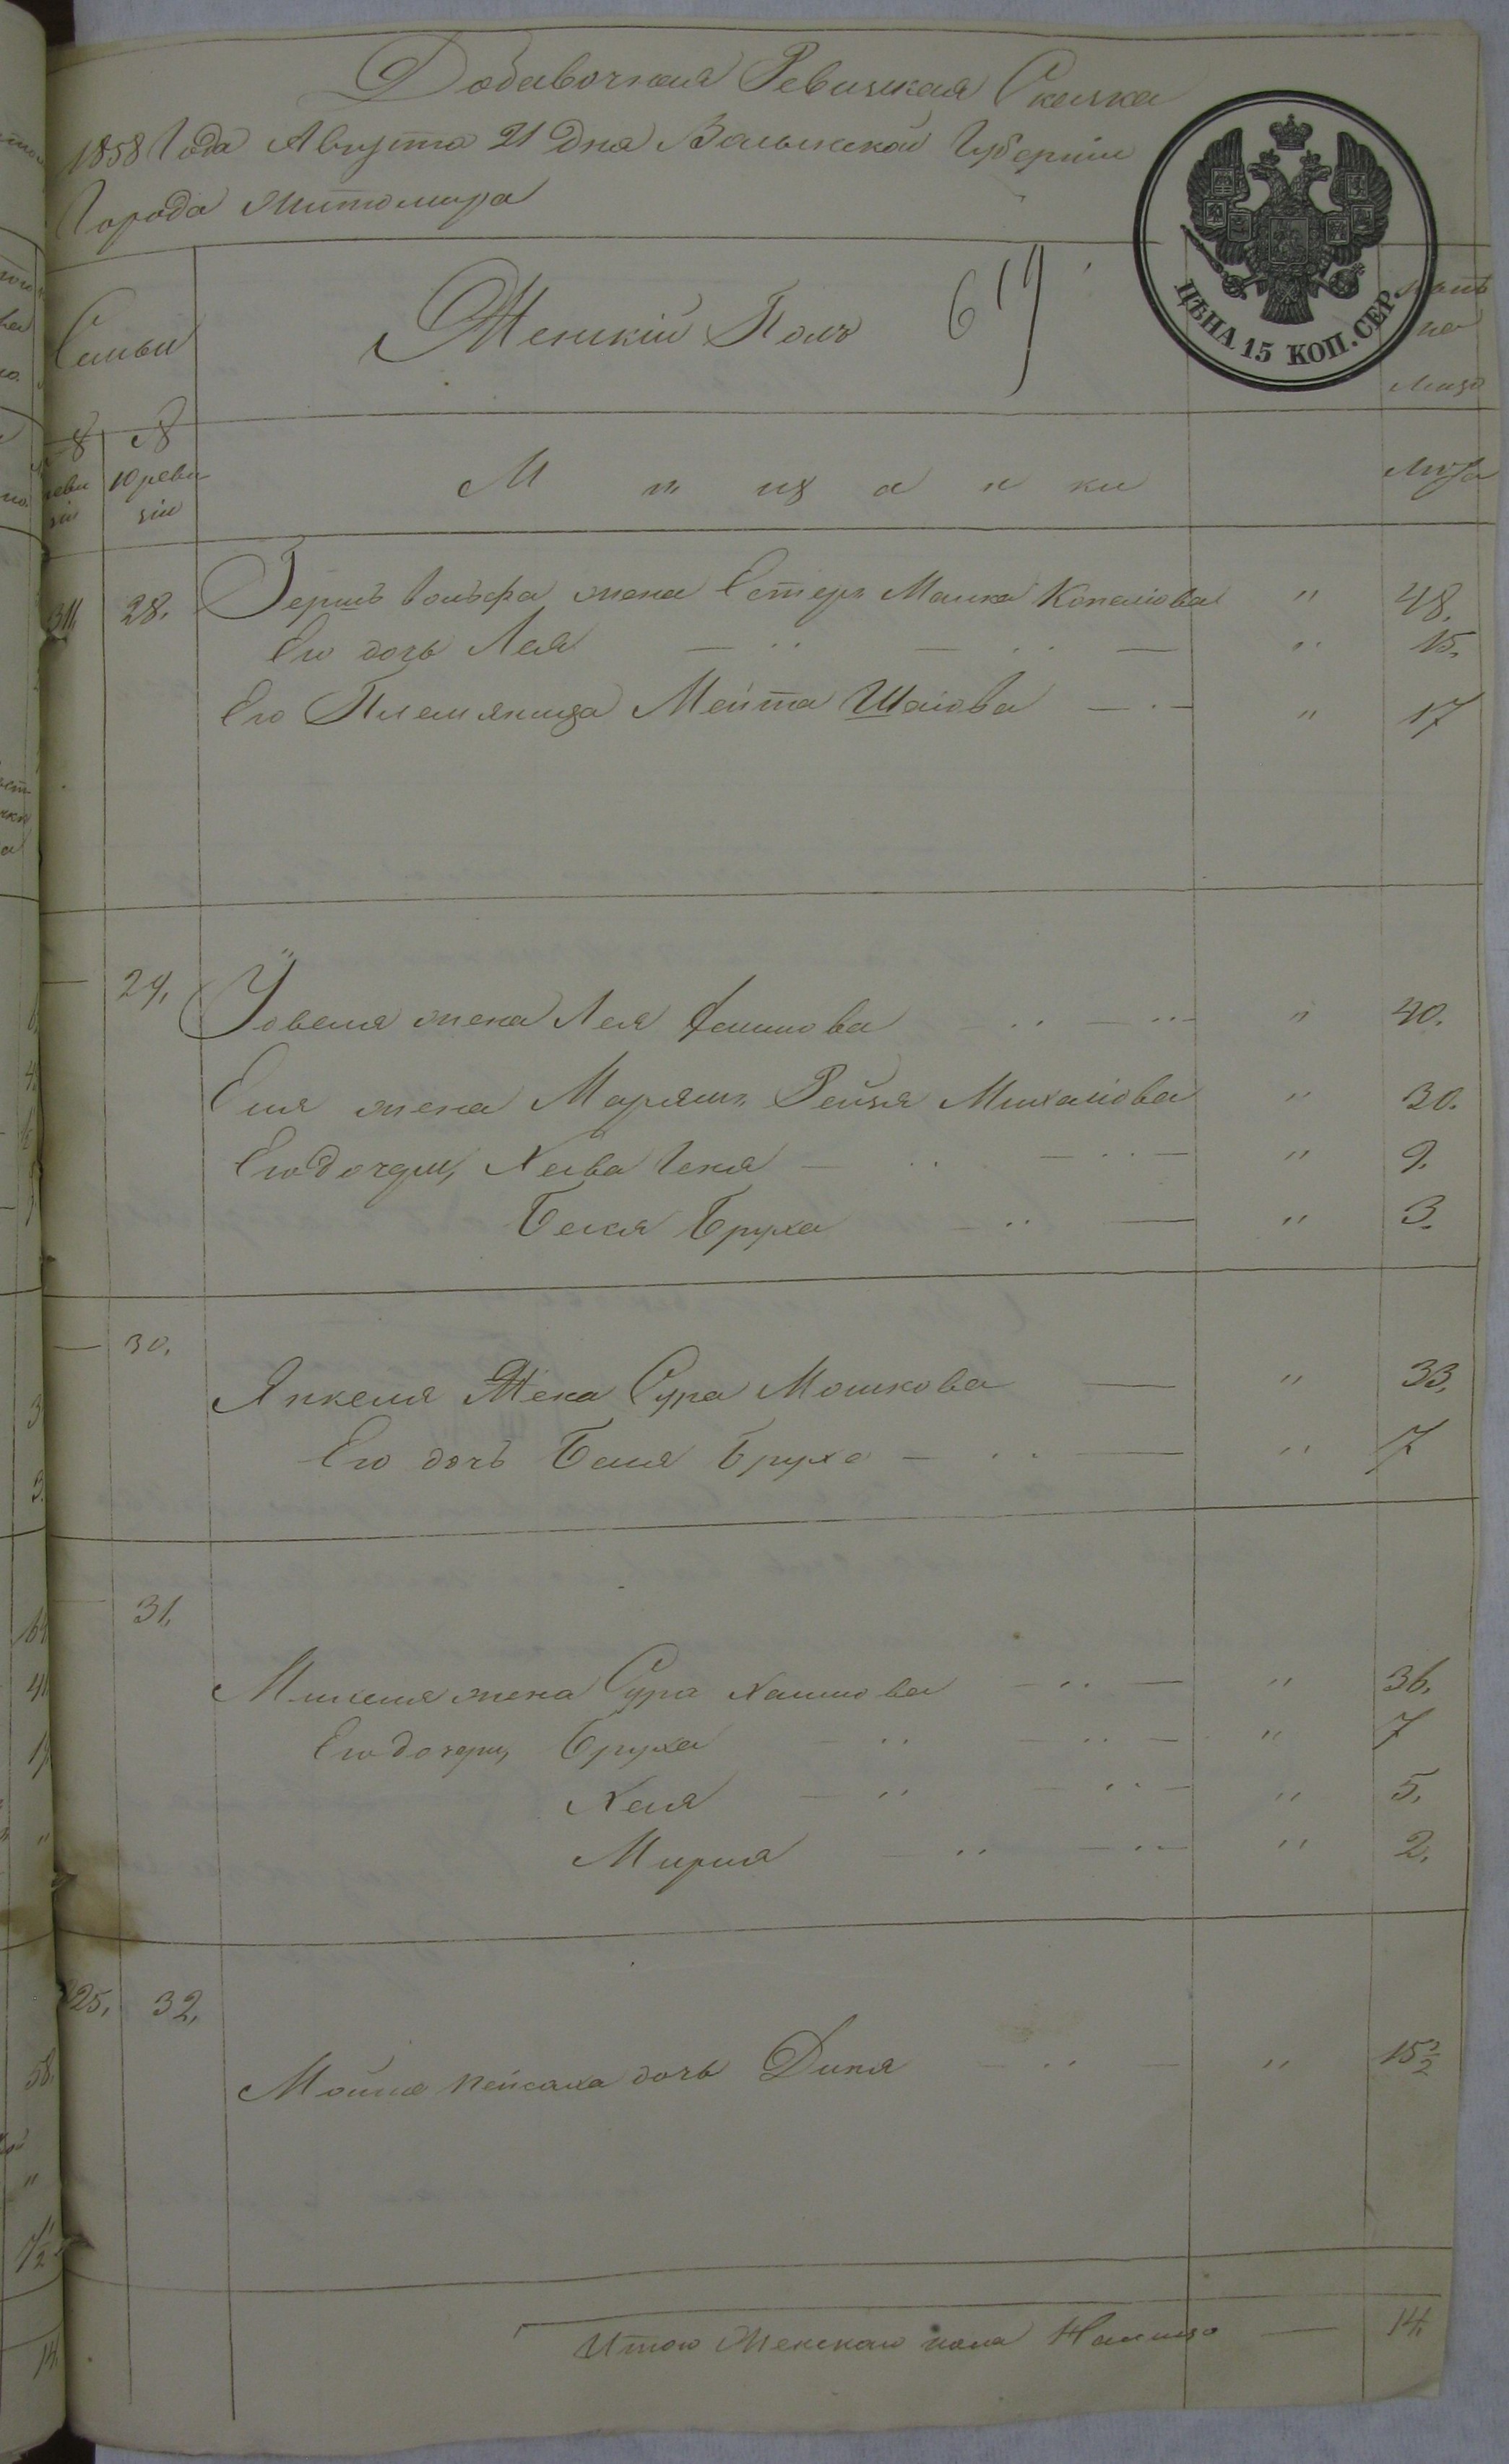 Добавочная Ревизкая Сказка
1858 Года Августа 21 Дня Волынской Губернии
Города Житомира
ЦѢНА 15 КОП. СЕР.
Семьи
Женскій Полъ
619
на
лицо
№
№
реви
зіи
10 реви
зіи
М ѣ щ а н к и
Лѣта
311, 28. Гершъ Вольфа жена Естеръ Малка Копелюва " 48.
Его дочь Лея " 15.
Его Племяница Мейта Шаіова " 17
29, Іовеля жена Лея " 40.
Еля жена Марьямъ Рейзя Михаліова " 30.
Его дочери, Хава Геня " 9.
Бейля Бруха " 3.
30, Янкеля Жена Сура Мошкова " 33,
Его дочь Бейля Бруха " 7
31, жена Сура Хаимова " 36,
Его дочери, Бруха " 7
Хая " 5,
Мирля " 2,
25, 32, Мойше Пейсаха дочь Диня " 15½
Итого Женскаго пола На лицо — 14.